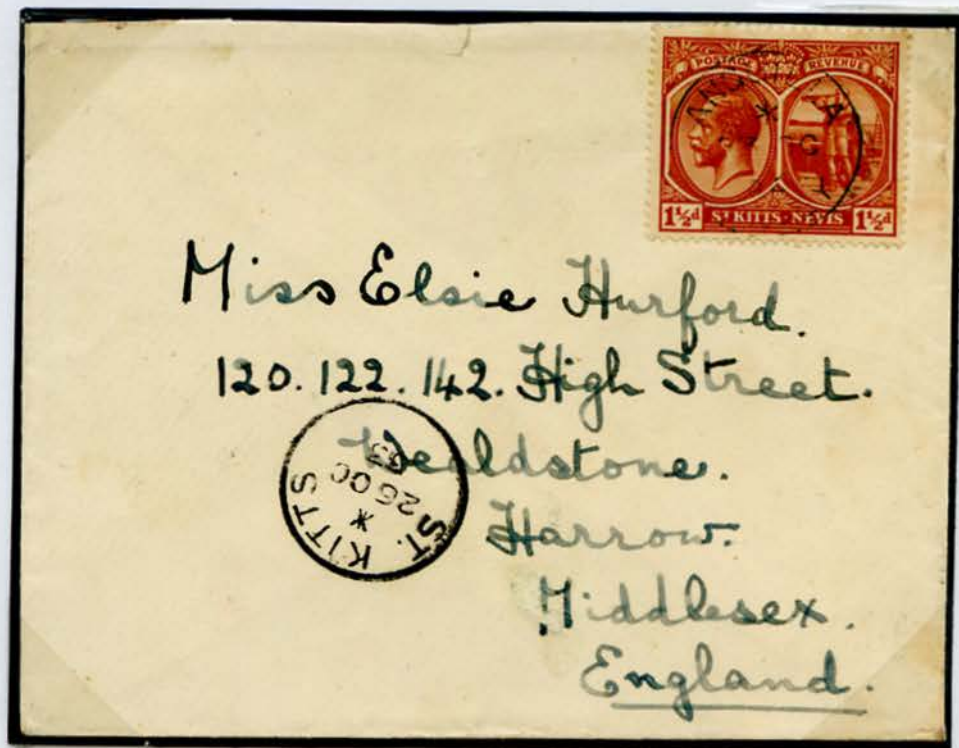 POSTAGE REVENUE
1½d ST KITTS-NEVIS 1½d
Miss Elsie Hurford.
120. 122. 142. High Street.
Wealdstone.
Harrow.
Middlesex.
England.
ST. KITTS
*
26 OC